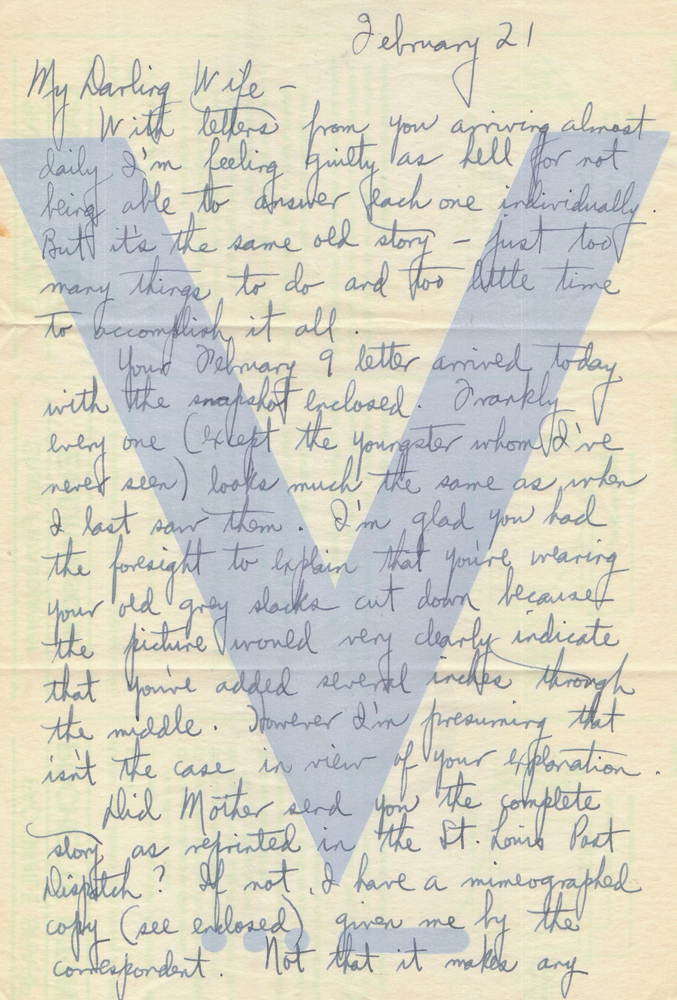 February 21
My Darling Wife -
With letters from you arriving almost
daily I'm feeling guilty as hell for not
being able to answer each one individually.
But it's the same old story - just too
many things to do and too little time
to accomplish it all.
Your February 9 letter arrived today
with the snapshot enclosed. Frankly
every one (except the youngster whom I've
never seen) looks much the same as when
I last saw them. I'm glad you had
the foresight to explain that you're wearing
your old grey slacks cut down because
the picture would very clearly indicate
that you've added several inches through
the middle. However I'm presuming that
isn't the case in view of your explanation.
Did Mother send you the complete
story as reprinted in the St. Louis Post
Dispatch? If not, I have a mimeographed
copy (see enclosed) given me by the
correspondent. Not that it makes any
V